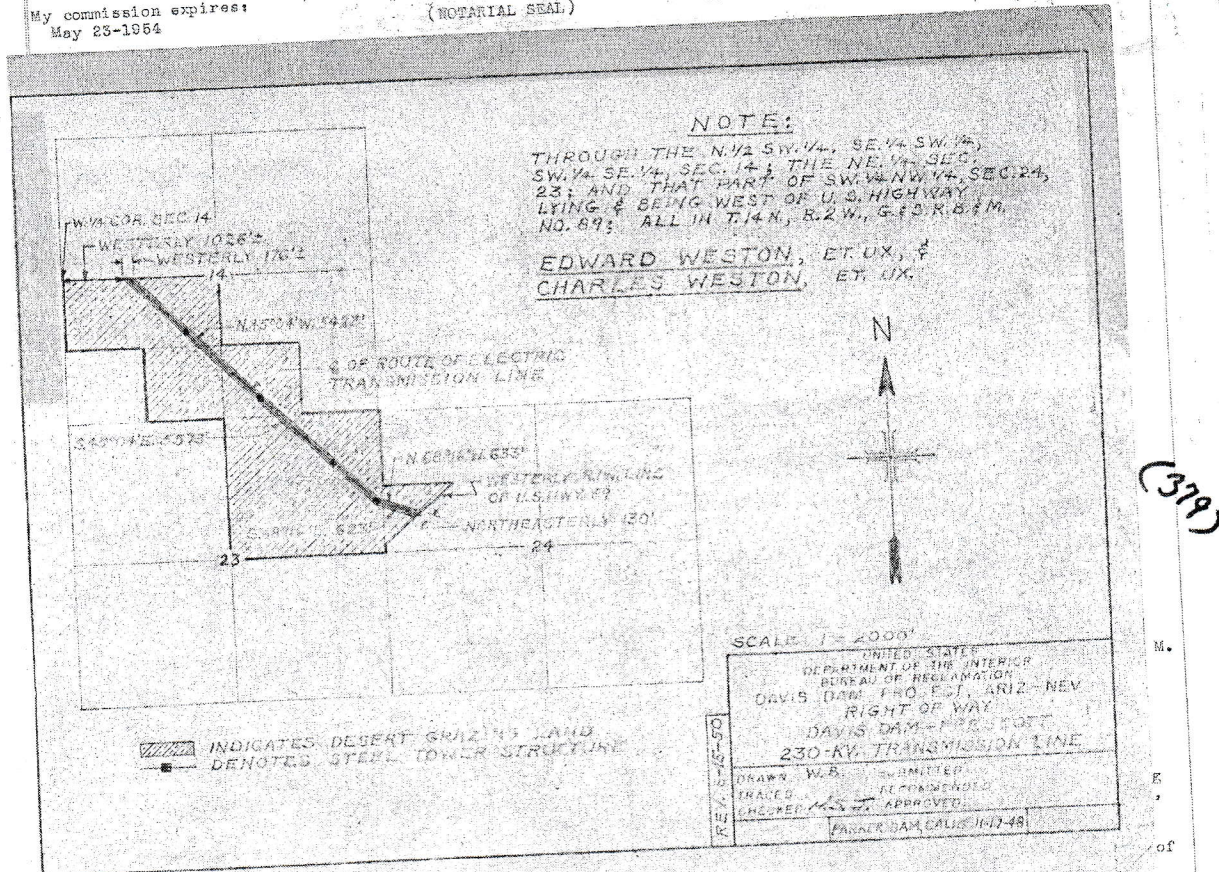 My commission expires:
(NOTARIAL SEAL)
May 23-1954
NOTE:
THROUGH THE N.1/2 SW.1/4, SE.1/4 SW.1/4,
SW.1/4 SE.1/4, SEC. 14; THE NE.1/4 SEC.
23; AND THAT PART OF SW.1/4 NW.1/4, SEC. 24,
LYING & BEING WEST OF U.S. HIGHWAY
NO. 89; ALL IN T.14 N., R.2 W., G.& S.R.B.& M.
EDWARD WESTON, ET. UX., &
CHARLES WESTON, ET. UX.
W.1/4 COR. SEC. 14
WESTERLY 1026'±
WESTERLY 176'±
14
℄ OF ROUTE OF ELECTRIC
TRANSMISSION LINE
N
WESTERLY R/W LINE
OF U.S. HWY. 89
NORTHEASTERLY 130'
23
24
(379)
SCALE: 1"=2000'
UNITED STATES
DEPARTMENT OF THE INTERIOR
BUREAU OF RECLAMATION
DAVIS DAM PROJECT, ARIZ.-NEV.
RIGHT OF WAY
DAVIS DAM-PRESCOTT
230-KV. TRANSMISSION LINE
DRAWN W.B. SUBMITTED
TRACED RECOMMENDED
CHECKED APPROVED
PARKER DAM, CALIF. 11-17-48
INDICATES DESERT GRAZING LAND
DENOTES STEEL TOWER STRUCTURE
M.
g
,
of